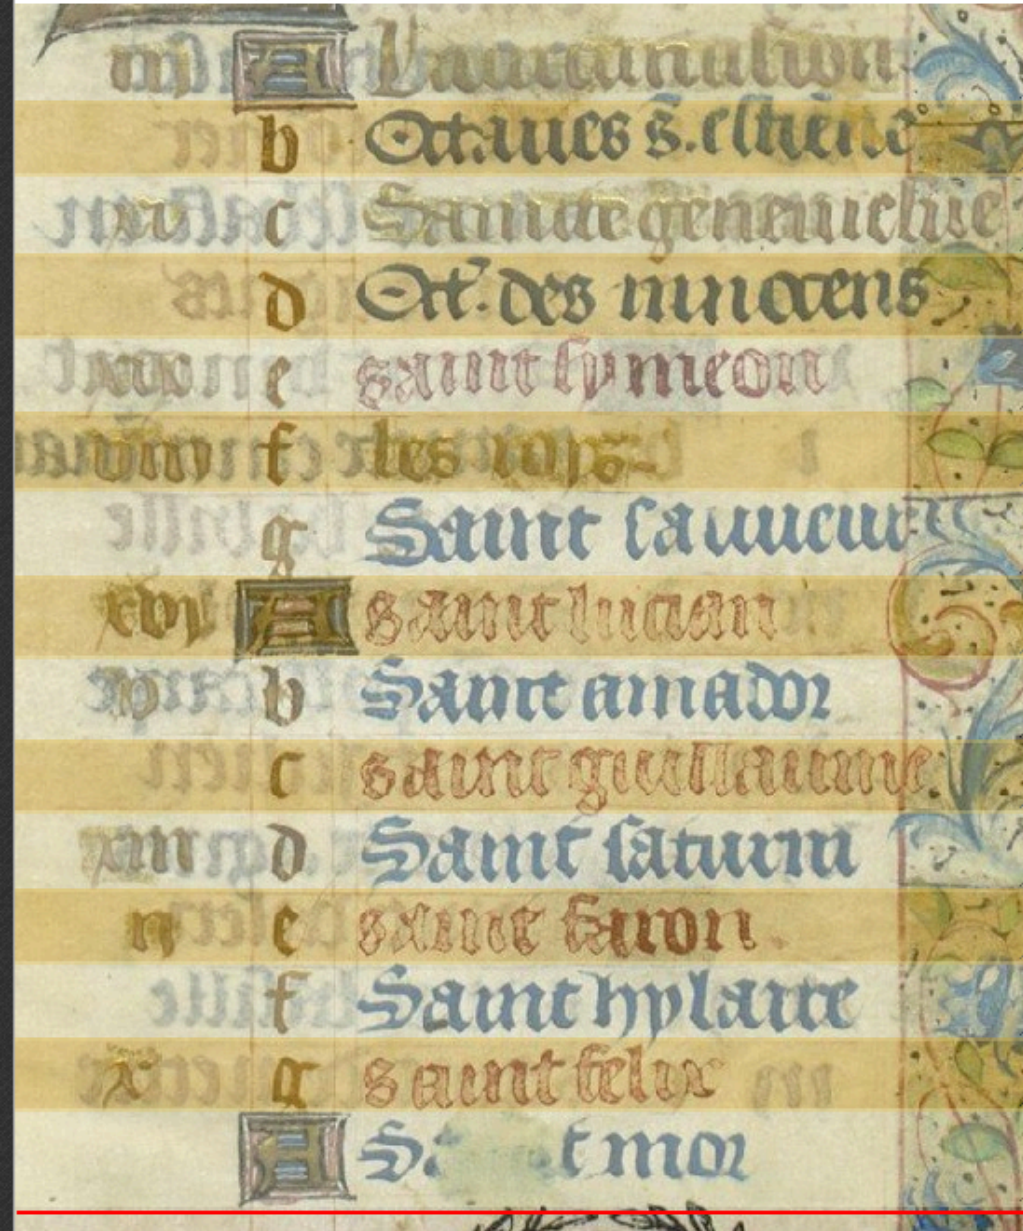 A La circuncision
b Octaues s. estiene
c Saincte geneuiefue
d Oct. des innocens
xix e saint symeon
viii f les rois
g Saint sauueur
xvi A saint lucian
v b Saint amador
c saint guillaume
xiii d Saint saturin
ii e saint faron
f Saint hylaire
x g saint felix
A mor